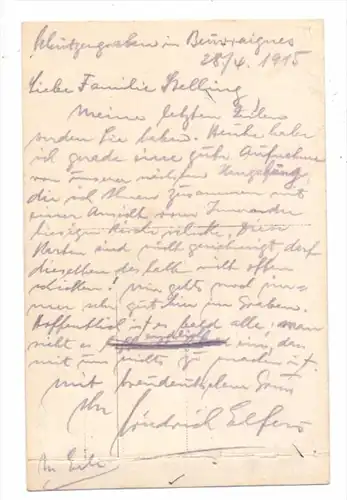 Schützengraben in Beuvraignes
28/4. 1915
Liebe Familie Belling!
Meine letzten Zeilen
werden Sie haben. Heute habe
ich gerade eine gute Aufnahme
von unserer nächsten Umgebung,
die ich Ihnen zusammen mit
einer Ansicht vom Innern der
hiesigen Kirche schicke. Diese
Karten sind nicht genehmigt, darf
dieselben deshalb nicht offen
schicken! Mir gehts noch im-
mer sehr gut hier im Graben.
Hoffentlich ist es bald alle, man
sieht es endlich ein, das
mit uns nichts zu machen ist.
Mit freundlichem Gruss
Ihr
Friedrich Elfers
In Eile